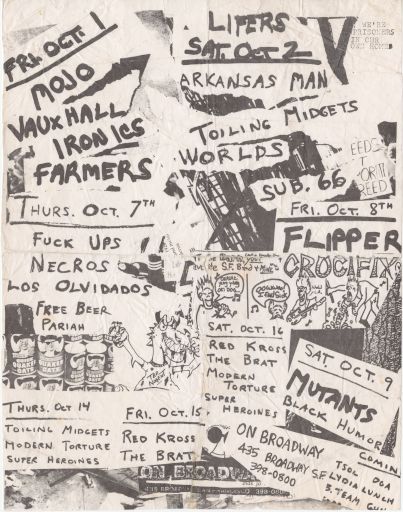 FRI. OCT. 1
MOJO
VAUXHALL
IRONICS
FARMERS
LIFERS
SAT. OCT 2
ARKANSAS MAN
TOILING MIDGETS
WORLDS
SUB. 66
WE'RE
PRISONERS
IN OUR
OWN HOMES
THURS. OCT. 7TH
FUCK UPS
NECROS
LOS OLVIDADOS
FREE BEER
PARIAH
FRI. OCT. 8TH
FLIPPER
CRUCIFIX
SAT. OCT. 16
RED KROSS
THE BRAT
MODERN
TORTURE
SUPER
HEROINES
SAT OCT. 9
MUTANTS
BLACK HUMOR
THURS. OCT 14
TOILING MIDGETS
MODERN TORTURE
SUPER HEROINES
FRI. OCT. 15
RED KROSS
THE BRAT
ON BROADWAY
435 BROADWAY
398-0800 S.F.
COMIN
TSOL DOA
LYDIA LUNCH
ON BROADWAY
435 BROADWAY